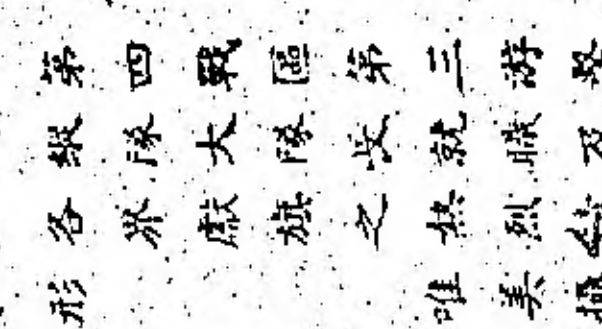 第四戰區第三游擊
縱隊大隊长就職及
各界獻旗之熱烈情
形 唯美攝